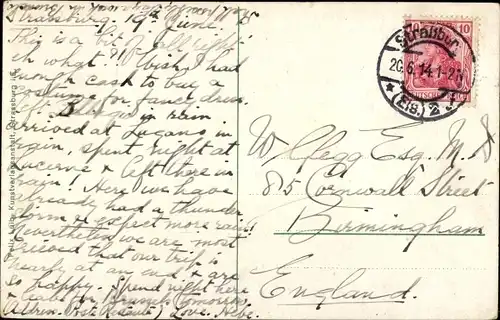 Strassburg. 19th June.
This is a bit of all right
eh what?! Wish I had
enough cash to buy a
costume for fancy dress.
Left B in rain
arrived at Lugano in
rain, spent night at
Lucerne & left there in
rain! Here we have
already had a thunder
storm & expect more rain!
Nevertheless we are most
grieved that our trip is
nearly at an end & are
so happy. Spend night here
& leave for Brussels tomorrow
(Address Poste Restante) Love. Hebe.
Felix Luib, Kunstverlagsanstalt, Strassburg i. E.
10
Straßburg
20.6.14.1-2N
* (Els.) 2
W Clegg Esq. M
85 Cornwall Street
Birmingham
England.